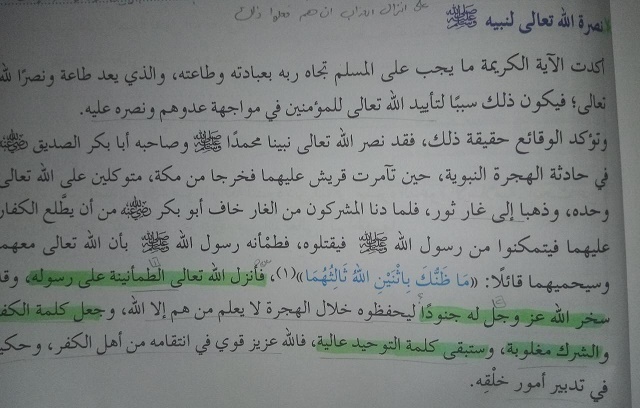 على انزال العذاب ان هم فعلوا ذلك
نصرة الله تعالى لنبيه ﷺ
أكدت الآية الكريمة ما يجب على المسلم تجاه ربه بعبادته وطاعته، والذي يعد طاعة ونصرًا لله
تعالى؛ فيكون ذلك سببًا لتأييد الله تعالى للمؤمنين في مواجهة عدوهم ونصره عليه.
وتؤكد الوقائع حقيقة ذلك، فقد نصر الله تعالى نبينا محمدًا ﷺ وصاحبه أبا بكر الصديق رضي الله عنه
في حادثة الهجرة النبوية، حين تآمرت قريش عليهما فخرجا من مكة، متوكلين على الله تعالى
وحده، وذهبا إلى غار ثور، فلما دنا المشركون من الغار خاف أبو بكر رضي الله عنه من أن يطَّلع الكفار
عليهما فيتمكنوا من رسول الله ﷺ فيقتلوه، فطمْأنه رسول الله ﷺ بأن الله تعالى معهما
وسيحميهما قائلًا: «مَا ظَنُّكَ بِاثْنَيْنِ اللهُ ثَالِثُهُمَا»(١)، فأنزل الله تعالى الطمأنينة على رسوله، وقد
سخر الله عز وجل له جنودًا ليحفظوه خلال الهجرة لا يعلم من هم إلا الله، وجعل كلمة الكفر
والشرك مغلوبة، وستبقى كلمة التوحيد عالية، فالله عزيز قوي في انتقامه من أهل الكفر، وحكيم
في تدبير أمور خلْقِه.